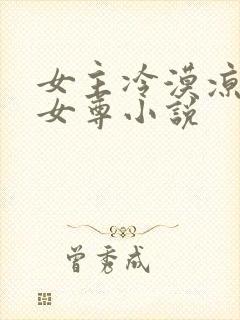 女主冷漠凉
女尊小说
曾秀成